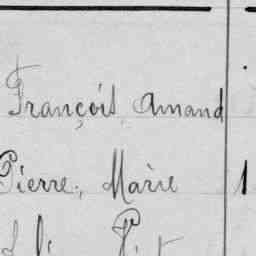 François, Amand
Pierre, Marie 1